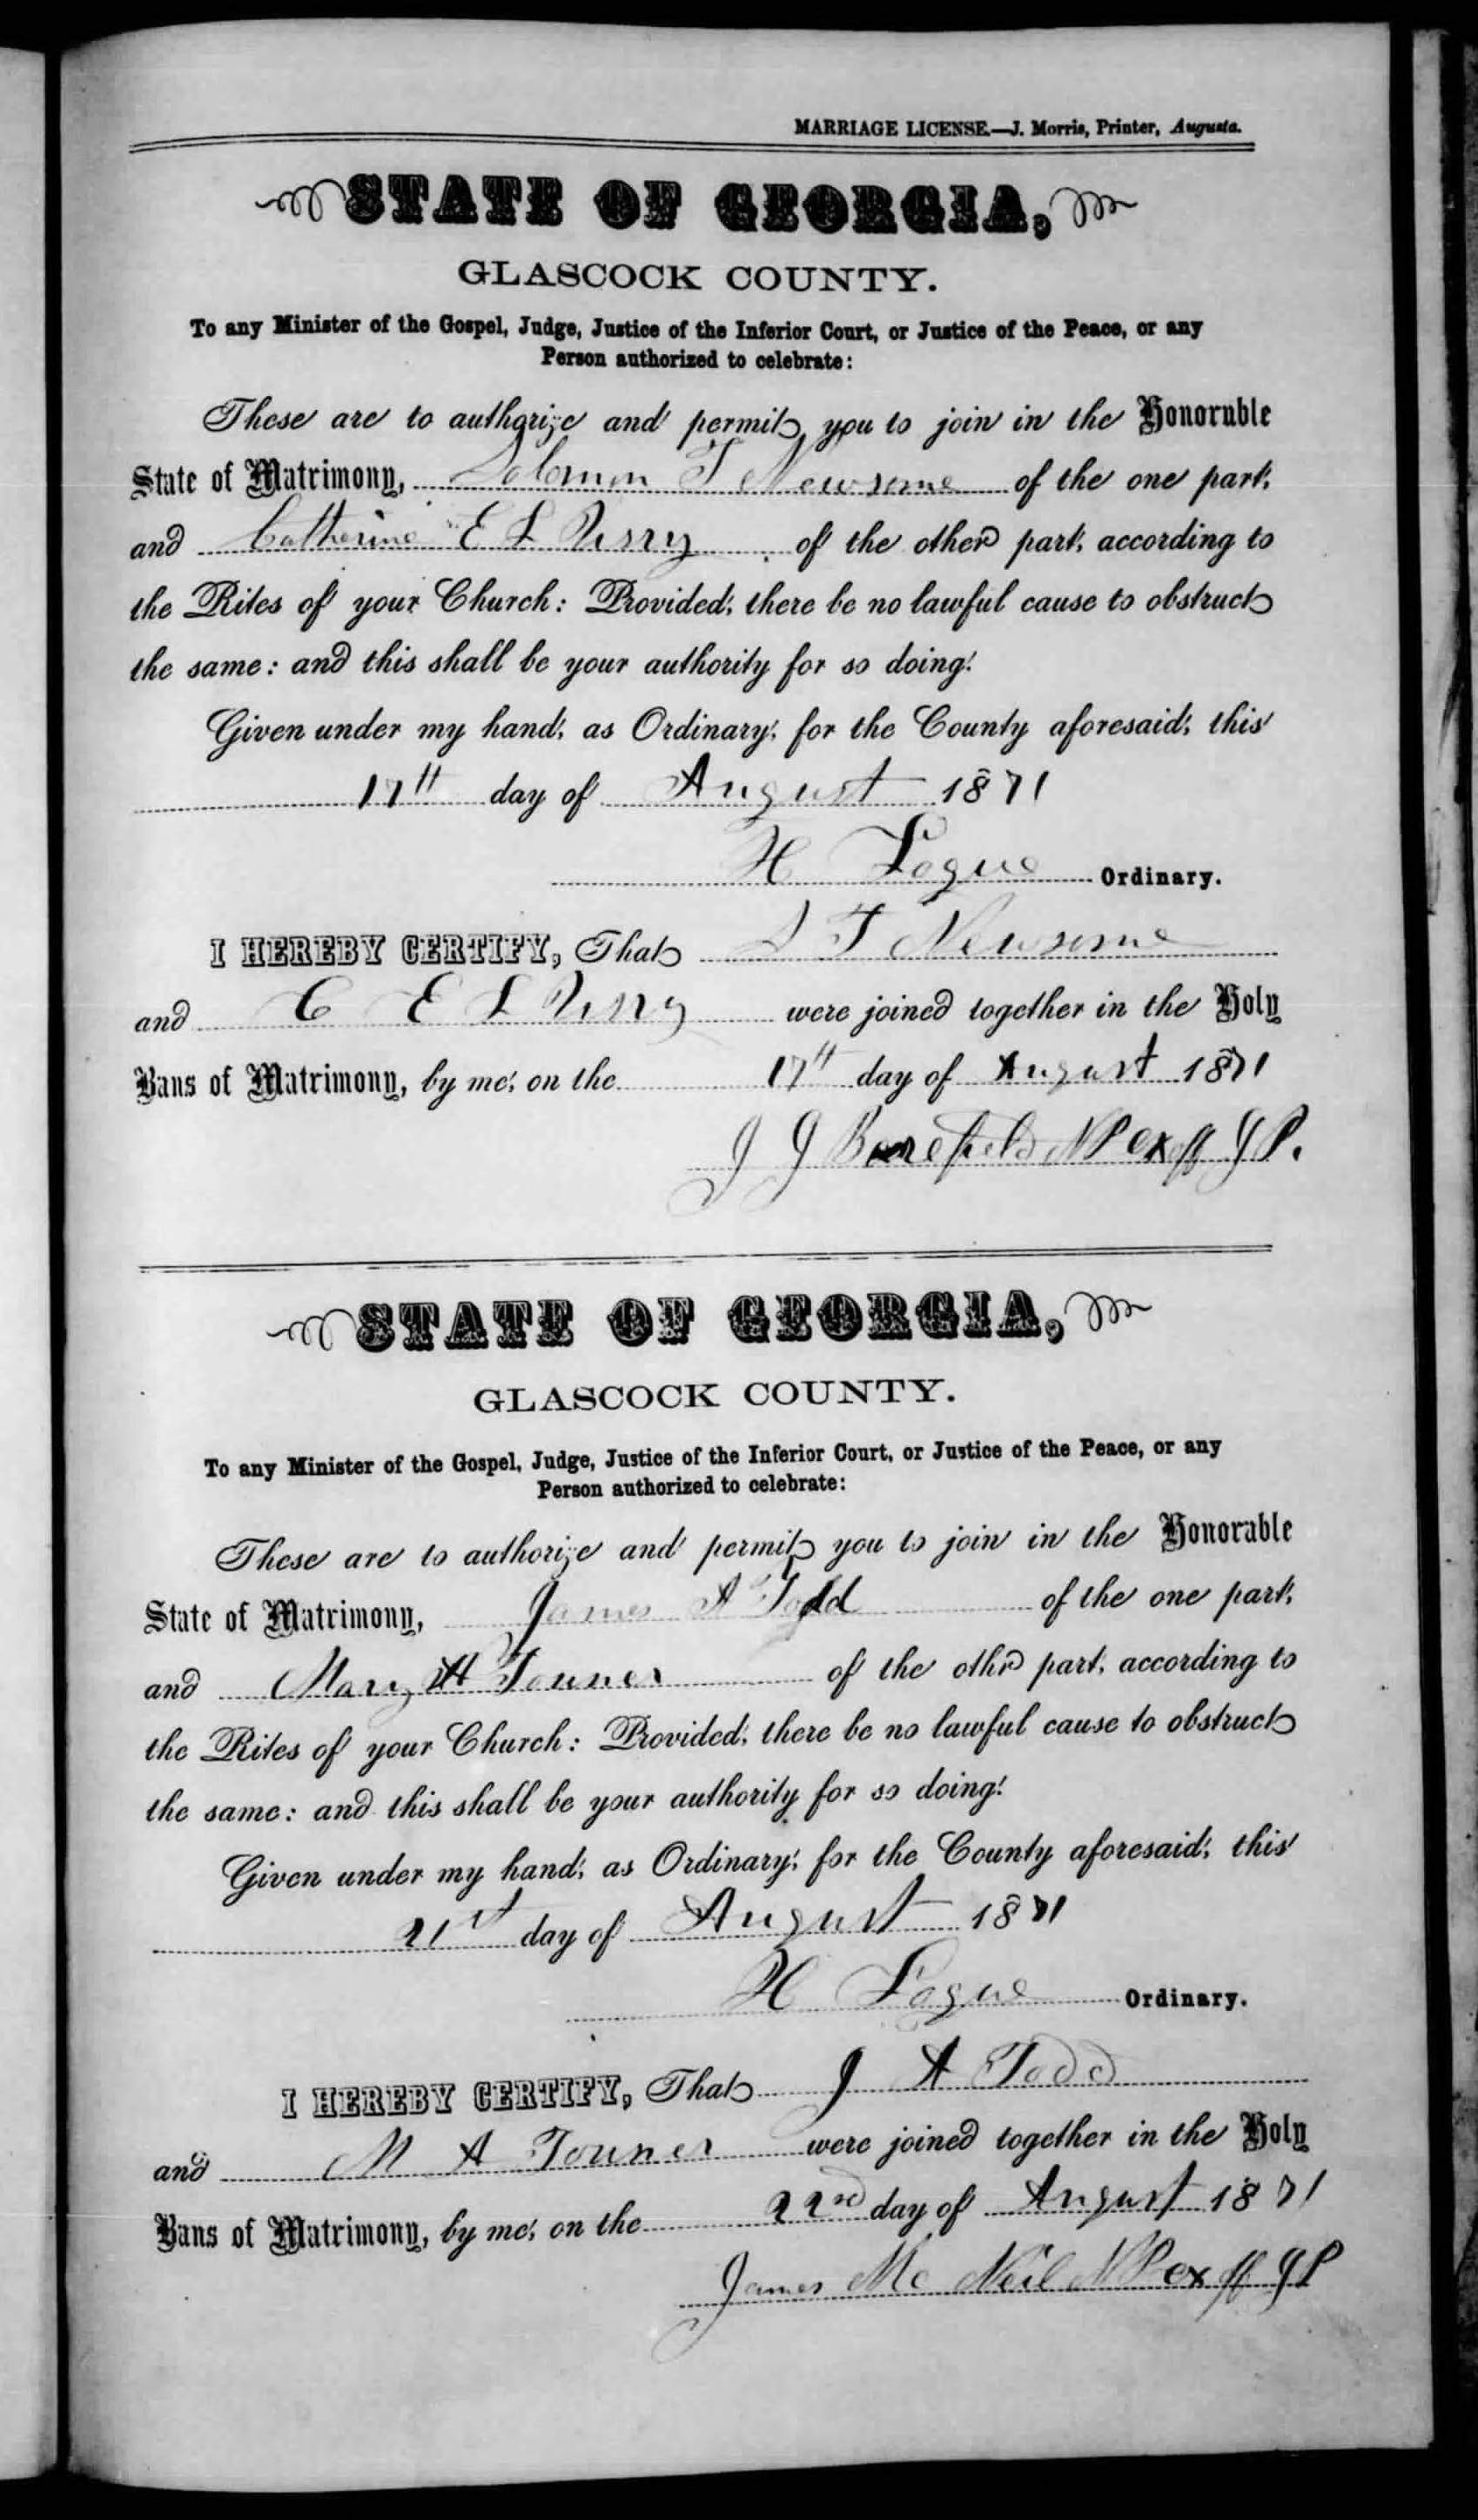 MARRIAGE LICENSE.—J. Morris, Printer, Augusta.
STATE OF GEORGIA,
GLASCOCK COUNTY.
To any Minister of the Gospel, Judge, Justice of the Inferior Court, or Justice of the Peace, or any
Person authorized to celebrate:
These are to authorize and permit you to join in the Honoruble
State of Matrimony, Solomon T Newsome of the one part,
and Catherine E L Perry of the other part, according to
the Rites of your Church: Provided, there be no lawful cause to obstruct
the same: and this shall be your authority for so doing.
Given under my hand, as Ordinary, for the County aforesaid, this
17th day of August 1871
H Logue Ordinary.
I HEREBY CERTIFY, That S T Newsome
and C E L Perry were joined together in the Holy
Bans of Matrimony, by me, on the 17th day of August 1871
J J Barefield NP ex off JP.
STATE OF GEORGIA,
GLASCOCK COUNTY.
To any Minister of the Gospel, Judge, Justice of the Inferior Court, or Justice of the Peace, or any
Person authorized to celebrate:
These are to authorize and permit you to join in the Honorable
State of Matrimony, James A Todd of the one part,
and Mary A Touner of the othr part, according to
the Rites of your Church: Provided, there be no lawful cause to obstruct
the same: and this shall be your authority for so doing.
Given under my hand, as Ordinary, for the County aforesaid, this
21st day of August 1871
H Logue Ordinary.
I HEREBY CERTIFY, That J A Todd
and M A Touner were joined together in the Holy
Bans of Matrimony, by me, on the 22nd day of August 1871
James Mc Neil NP ex off JP